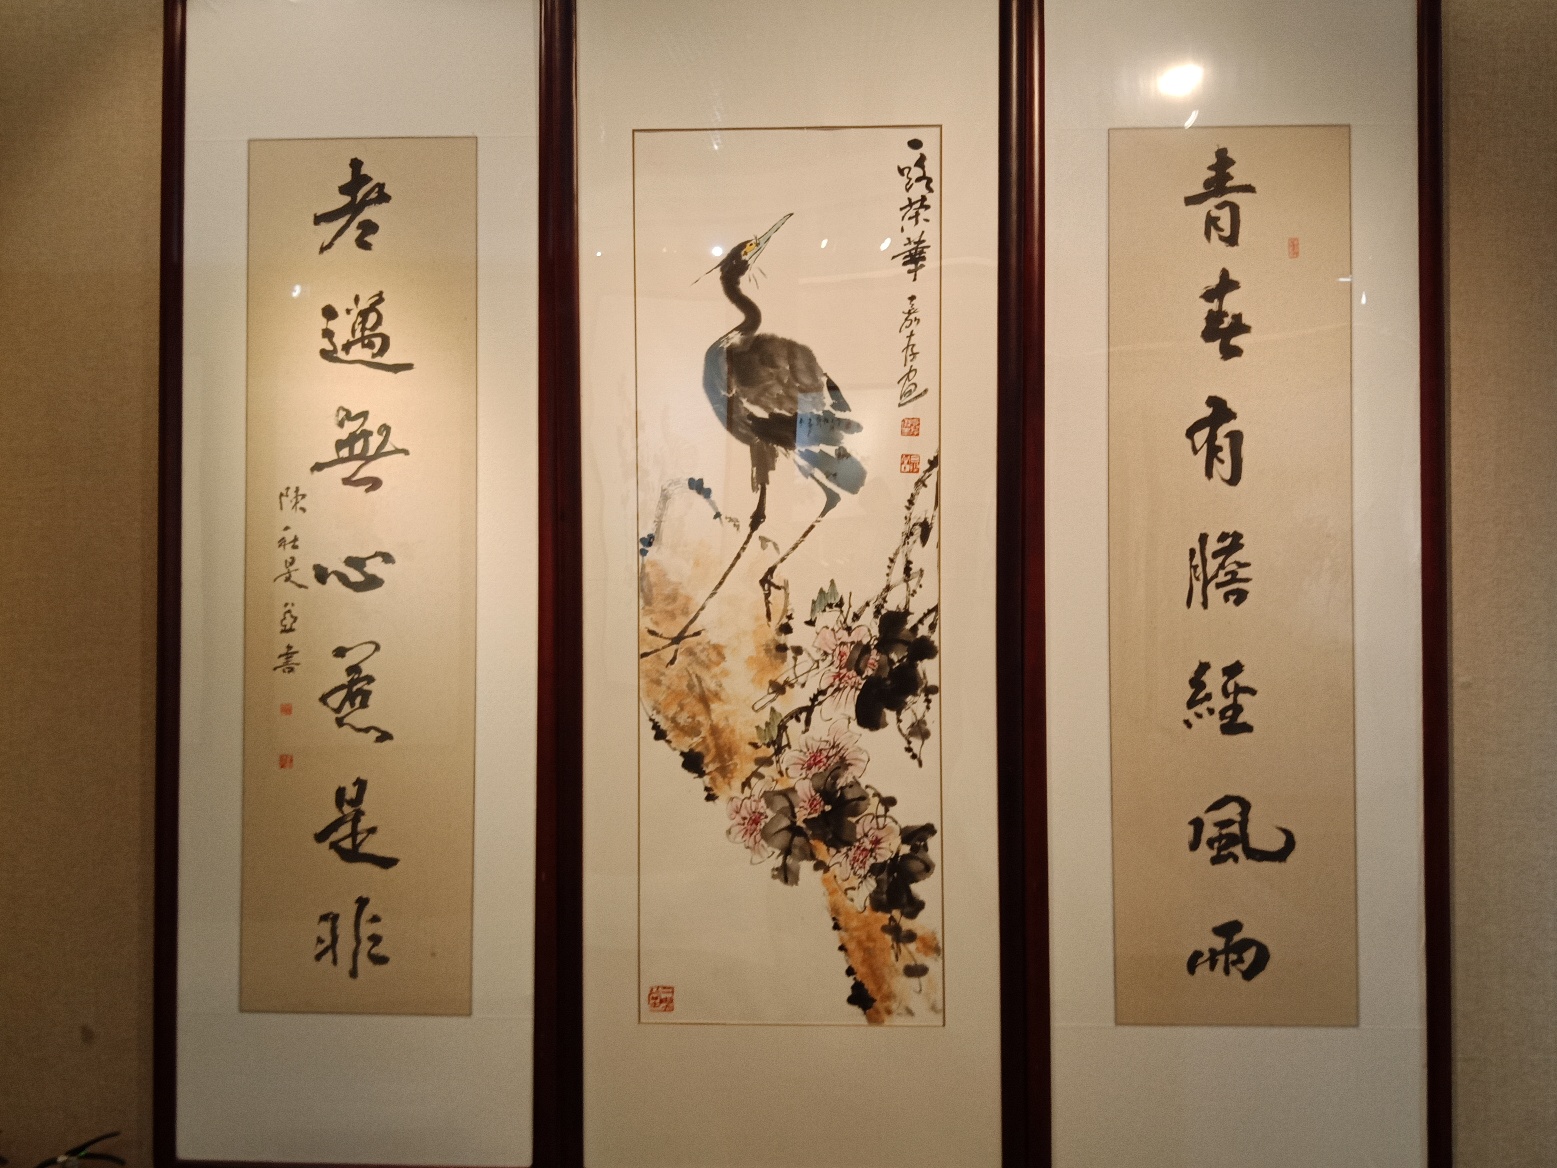 青春有膽經風雨
一路榮華
老邁無心惹是非
陳社旻並書